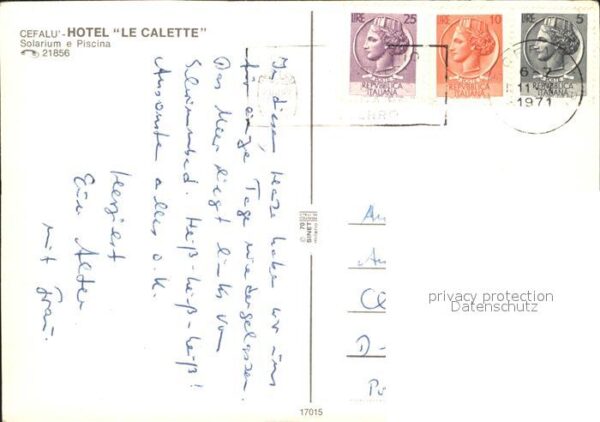 CEFALU' - HOTEL "LE CALETTE"
Solarium e Piscina
21856
LIRE 25
REPVBBLICA
ITALIANA
LIRE 10
REPVBBLICA
ITALIANA
LIRE 5
REPVBBLICA
ITALIANA
1971
In diesem Haze haben wir uns
für einige Tage niedergelassen.
Das Meer liegt links vom
Schwimmbad. Heiß-heiß-heiß!
Ansonsten alles o.k.
Herzlichst
Eure Alten
mit Frau.
privacy protection
Datenschutz
D-
17015